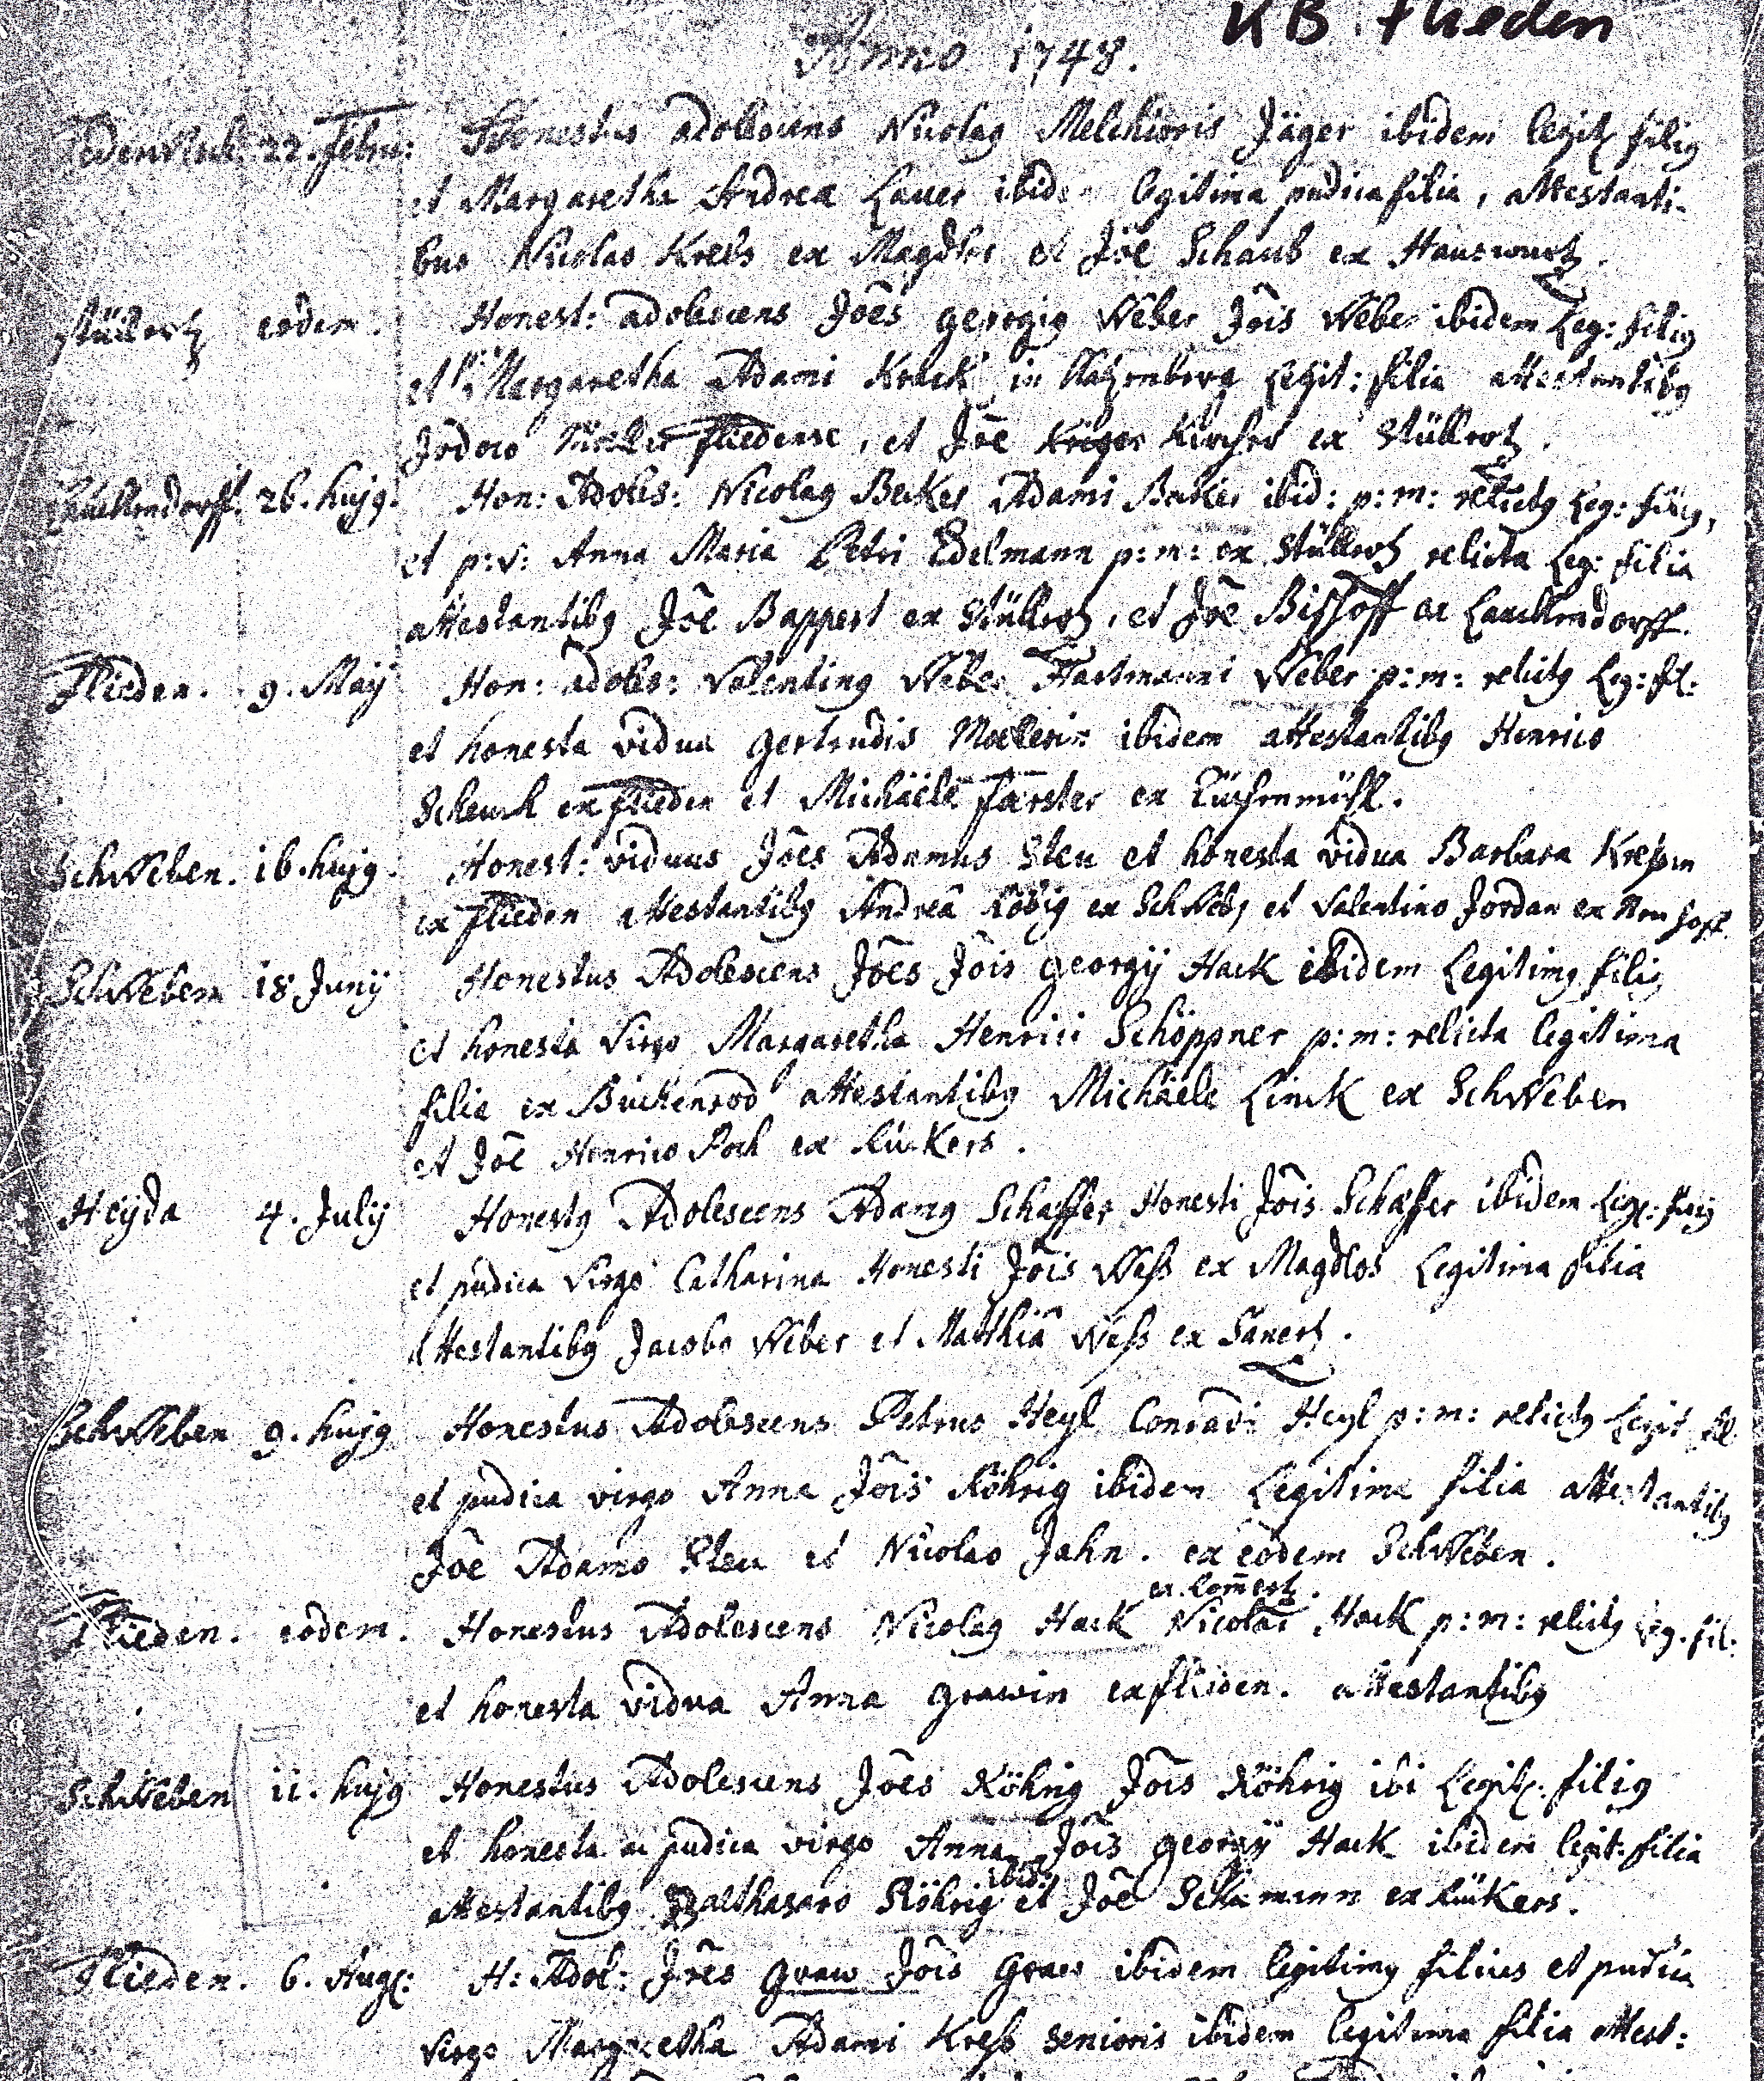 KB. Flieden
Anno 1748.
22. Febru: Honestus adolescens Nicolaq Melchioris Jäger ibidem legit filiq
et Margaretha Andreæ Lauer ibidem legitima pudica filia, attestanti-
bus Nicolao Krebs ex Magdlos et Jõe Schaub ex Hauswurtz.
Stüllertz eodem. Honest: adolescens Jões georgiq Weber Jõis Weber ibidem Leg: filiq
et Margaretha Adami Krack in Katzenberg Legit: filia attestantibq
Jodoco fliedense, et Jõe Kircher ex Stüllertz.
26. hujq. Hon: Adoles: Nicolaq Becker Adami Becker ibid: p: m: relictq Leg: filiq,
et p: v: Anna Maria Petri Edelmann p: m: ex Stüllertz relicta Leg: filia
attestantibq Jõe Bappert ex Stüllertz, et Jõe Bischoff ex
Flieden. 9. Maÿ Hon: adoles: Valentinq Weber Hartmanni Weber p: m: relictq Leg: fil:
et honesta vidua gertrudis ibidem attestantibq Henrico
Schenck ex flieden et Michäele færster ex
SchWeben. 16. hujq. Honest: viduus Jões Adamus Steu et honesta vidua Barbara
ex flieden attestantibq Andreâ Röbig ex SchWeb, et Valentino Jordan ex
SchWeben 18 Junÿ Honestus Adolescens Jões Jõis georgÿ Hack ibidem Legitimq filiq
et honesta Virgo Margaretha Henrici Schöppner p: m: relicta legitima
filia ex Buchenrod attestantibq Michäele Linck ex SchWeben
et Jõe Henrico ex Rückers.
Heÿda 4. Julÿ Honestq Adolescens Adamq Schäffer Honesti Jõis Schäffer ibidem Leg: filiq
et pudica Virgo Catharina Honesti Jõis Weß ex Magdlos Legitima filia
attestantibq Jacobo Weber et Matthiâ Weß ex
SchWeben 9. hujq Honestus Adolescens Petrus Heyl Conradi Heyl p: m: relictq Legit fil
et pudica virgo Anna Jõis Röhrig ibidem Legitima filia attestantibq
Jõe Adamo Steu et Nicolao Jahn. ex eodem SchWeben.
ex. Commertz.
Flieden. eodem. Honestus Adolescens Nicolaq Hack Nicolai Hack p: m: relictq Leg. fil:
et honesta vidua Anna grawin ex flieden. attestantibq
SchWeben 11. hujq Honestus Adolescens Jões Röhrig Jõis Röhrig ibi Legit. filiq
et honesta ac pudica virgo Anna Jõis georgÿ Hack ibidem legit: filia
ibid:
attestantibq Balthasaro Röhrig et Jõe ex Rückers.
Flieden. 6. Aug: H: Adol: Jões graw Jõis graw ibidem legitimq filius et pudica
virgo Margaretha Adami Kreß senioris ibidem legitima filia attest: